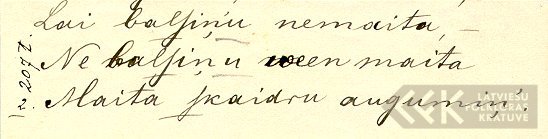 Lai balsiņu nemaita, —
Ne balsiņu ween maita
Maita skaidru augumiņ'.
LATVIEŠU
FOLKLORAS
KRĀTUVE